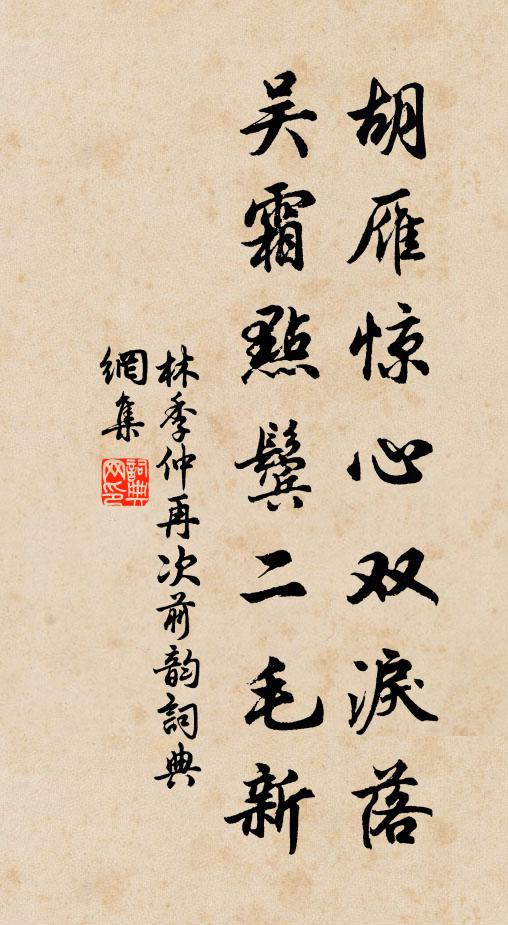 胡雁惊心双淚落
吴霜點鬓二毛新
林季仲再次前韵詞典
網集
詞典網印